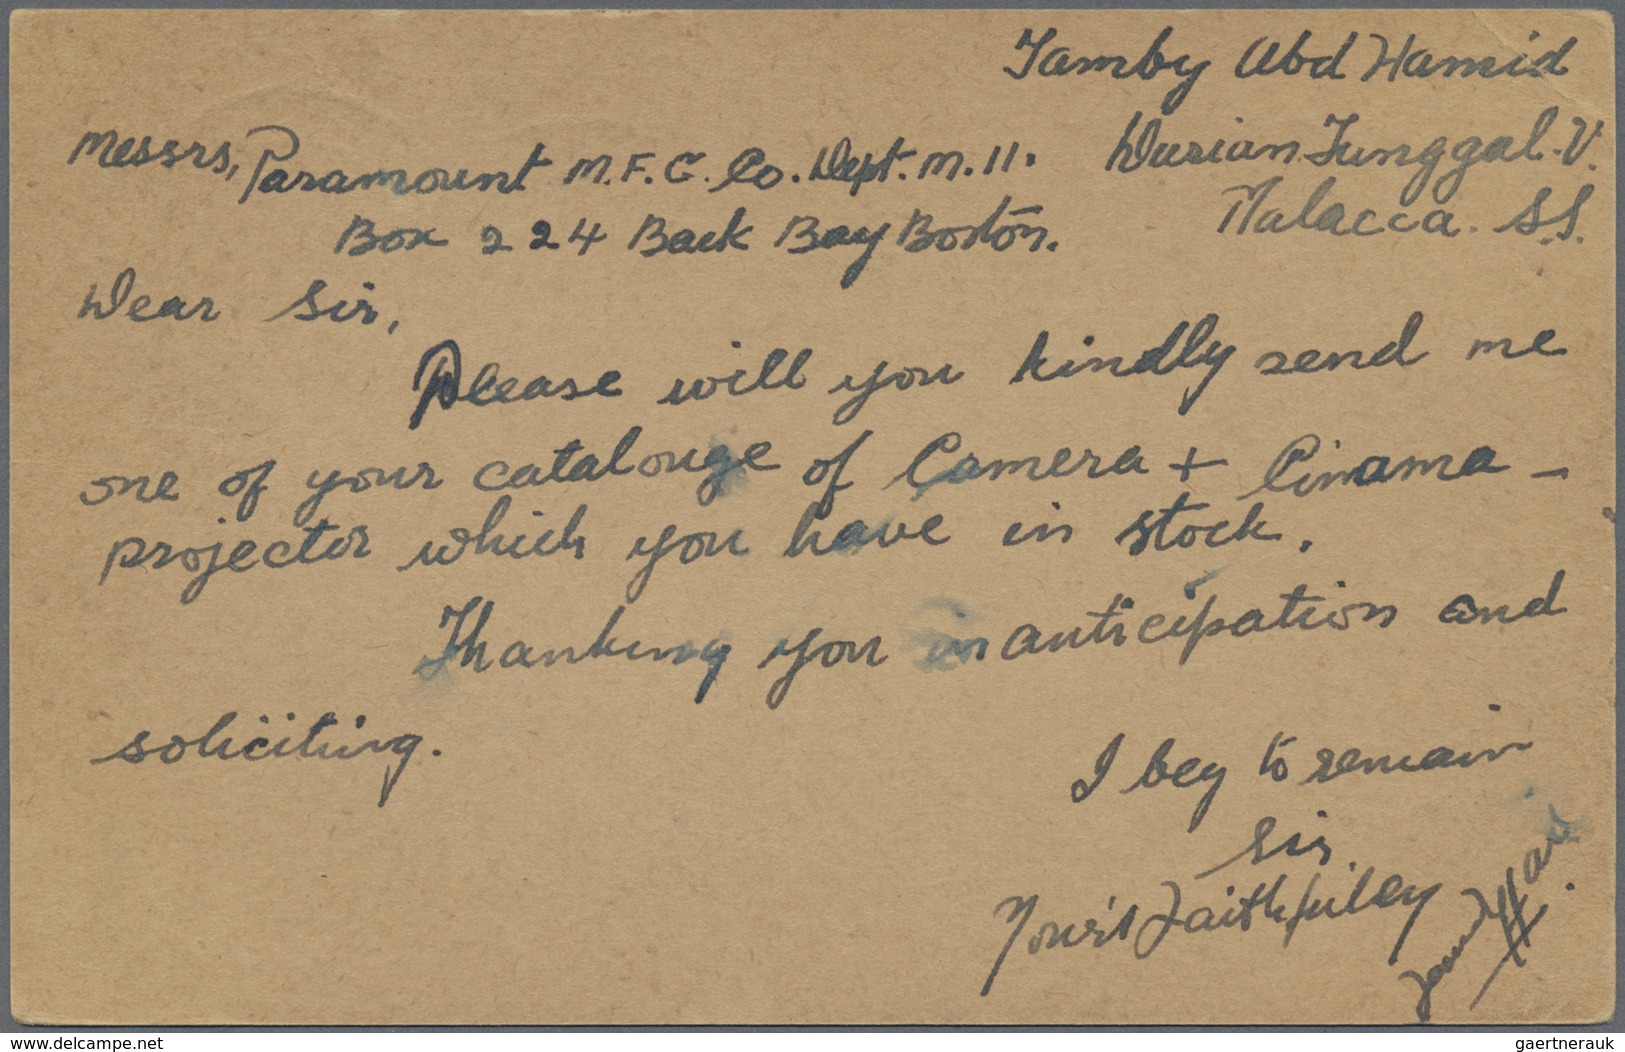 Tamby Abd Hamid
Durian Tunggal. V.
Malacca. S.S.
Messrs, Paramount M.F.G. Co. Dept. M. 11.
Box 224 Back Bay Boston.
Dear Sir,
Please will you kindly send me
one of your catalouge of Camera + Cinama -
projector which you have in stock.
Thanking you in anticipation and
soliciting.
I beg to remain
Sir.
Your's Faithfulley
www.delcampe.net
gaertnerauk